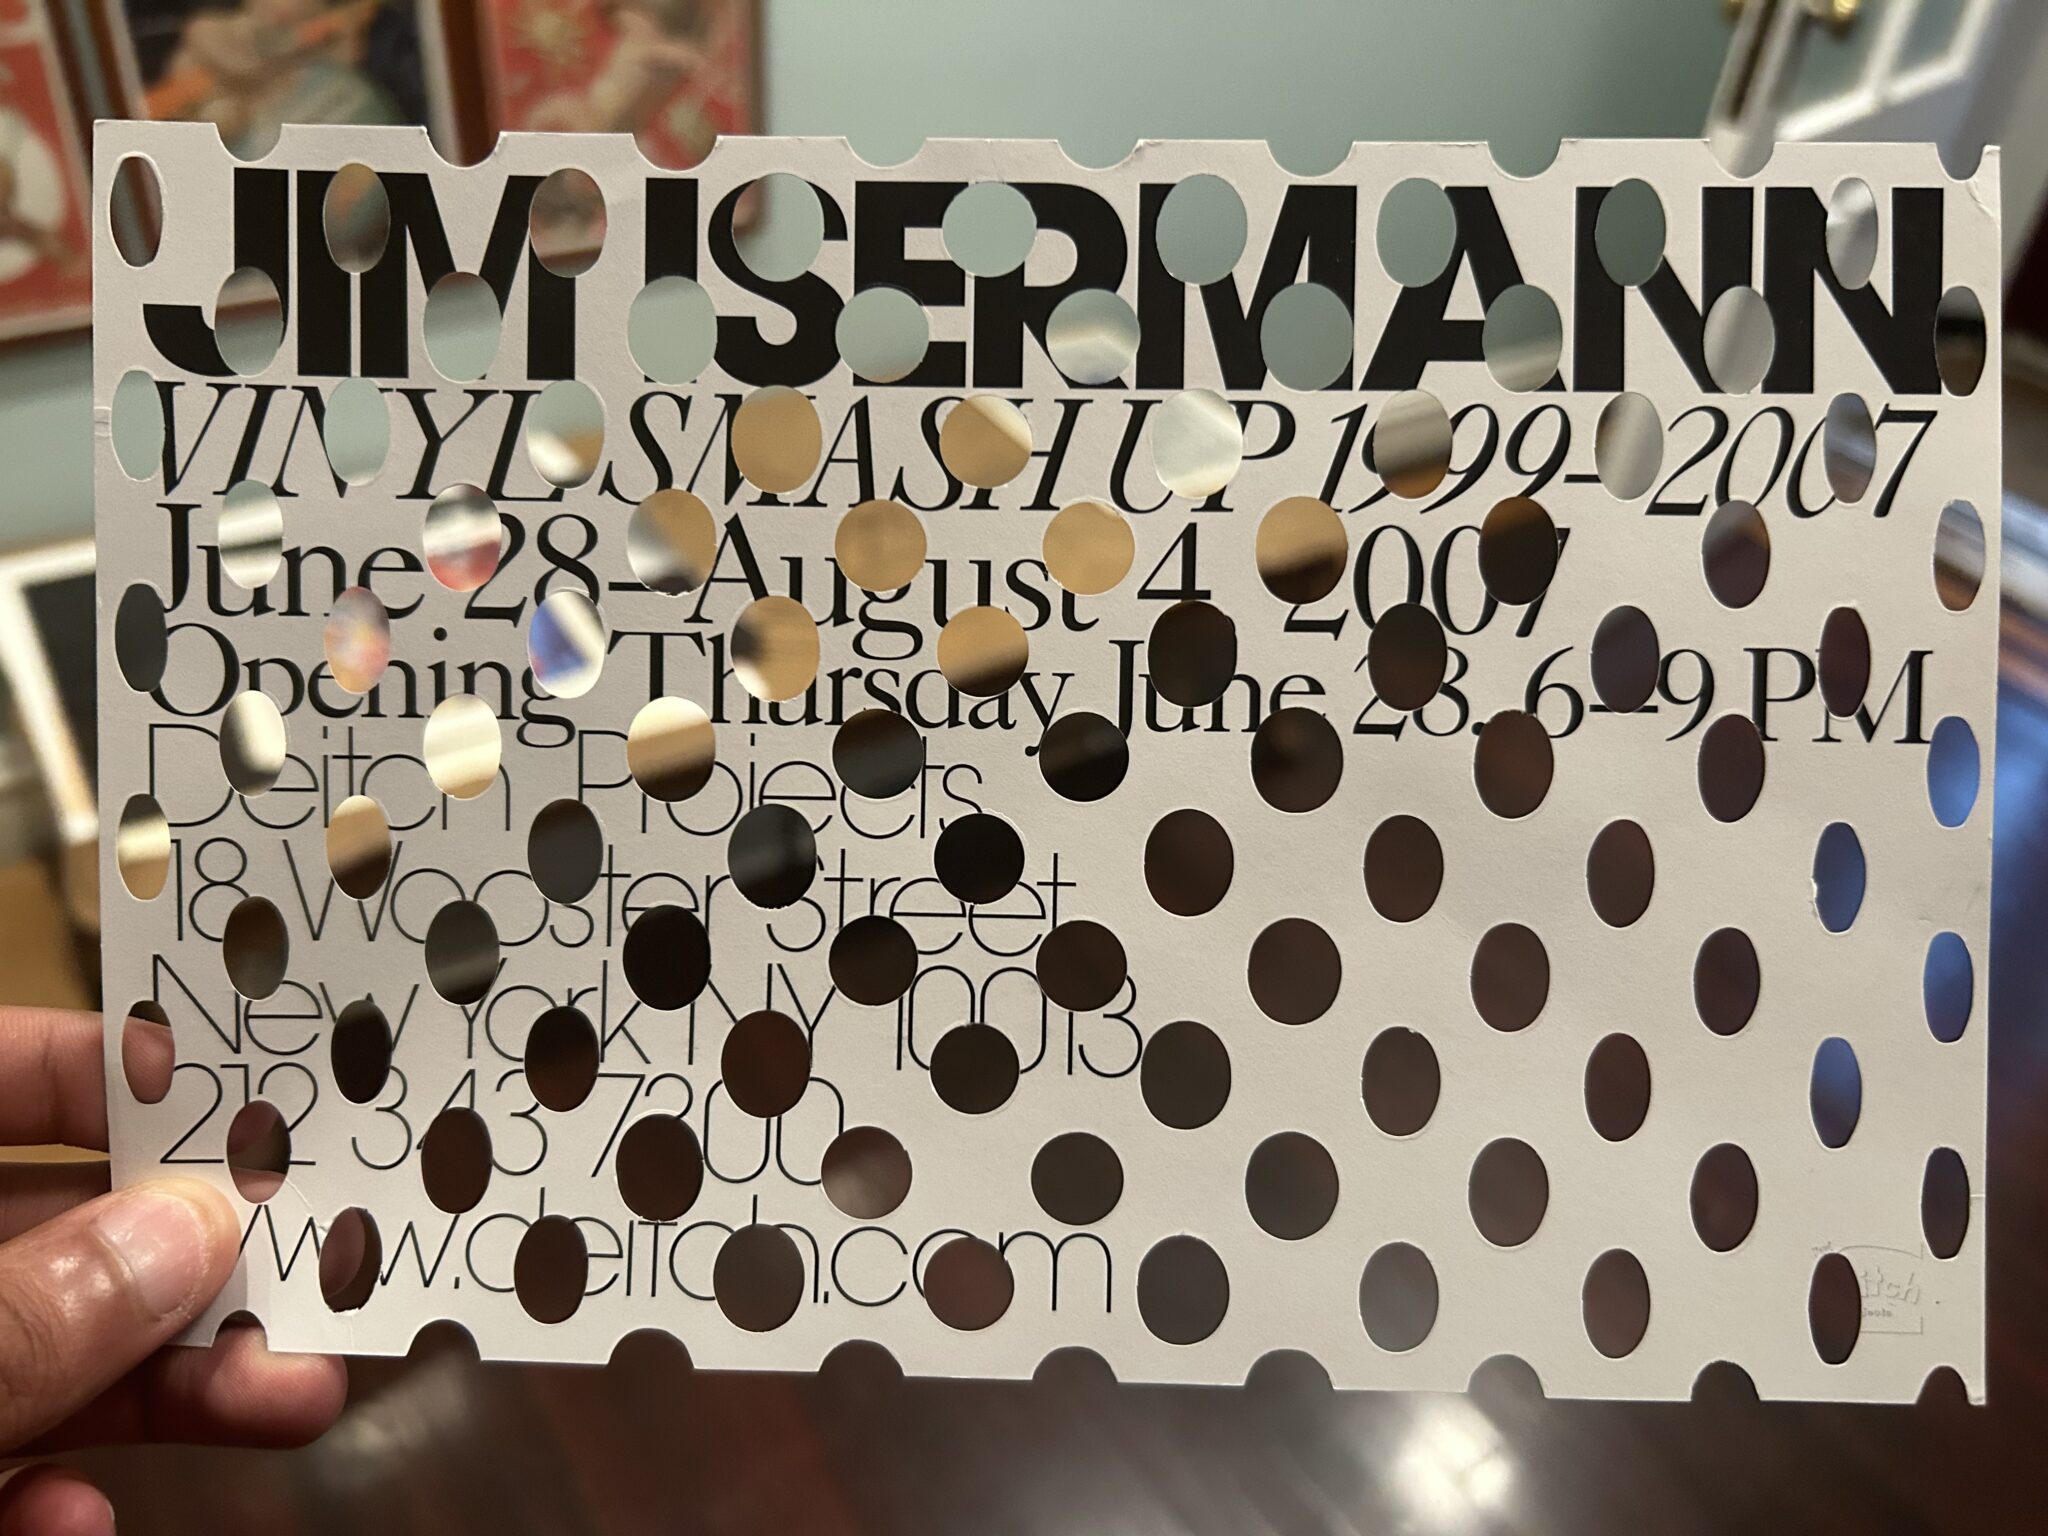 JIM ISERMANN
VINYL SMASH UP 1999–2007
June 28–August 4 2007
Opening Thursday June 28, 6–9 PM
Deitch Projects
18 Wooster Street
New York NY 10013
212 343 7300
www.deitch.com